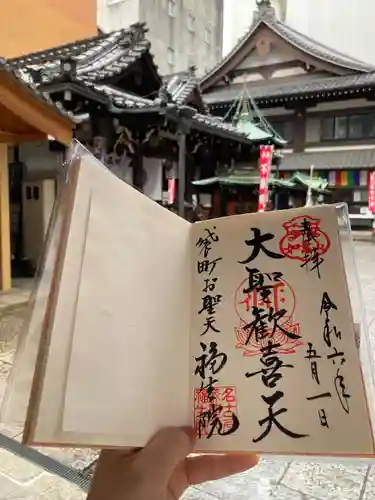 奉拝
令和六年
五月一日
大聖歓喜天
袋町お聖天
福生院